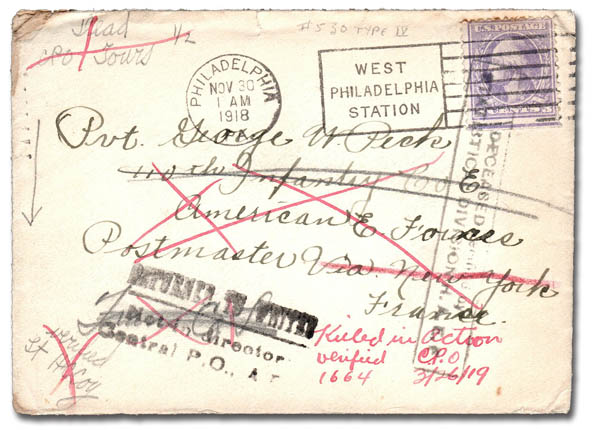 Dead
CPO Tours 1/2
#530 TYPE IV
U.S. POSTAGE
PHILADELPHIA
NOV 30
1 AM
1918
PA.
WEST
PHILADELPHIA
STATION
DECEASED
STATISTICAL DIVISION
Pvt. George W Peck
110th Infantry Co
American E. Forces
Postmaster Via. New York
France.
RETURNED TO WRITER
director
Central P.O.,
verified
Killed in Action
verified C.P.O
1664 3/26/19